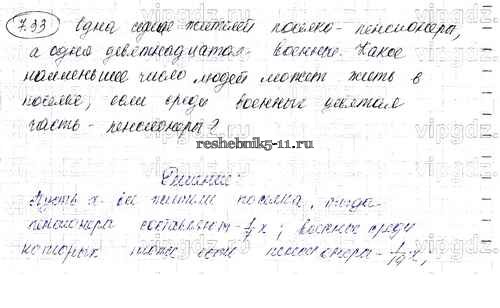 7.33 Одна седьмая жителей поселка - пенсионера,
а одна девятнадцатая - военные. Какое
наименьшее число людей может жить в
поселке, если среди военных девятая
часть - пенсионеры?
reshebnik5-11.ru
Решение:
Пусть x - все жители поселка, тогда
пенсионера составляют - 1/7 x; военные среди
которых тоже есть пенсионера - 1/19 x,
vipgdz
vipgdz
vipgdz